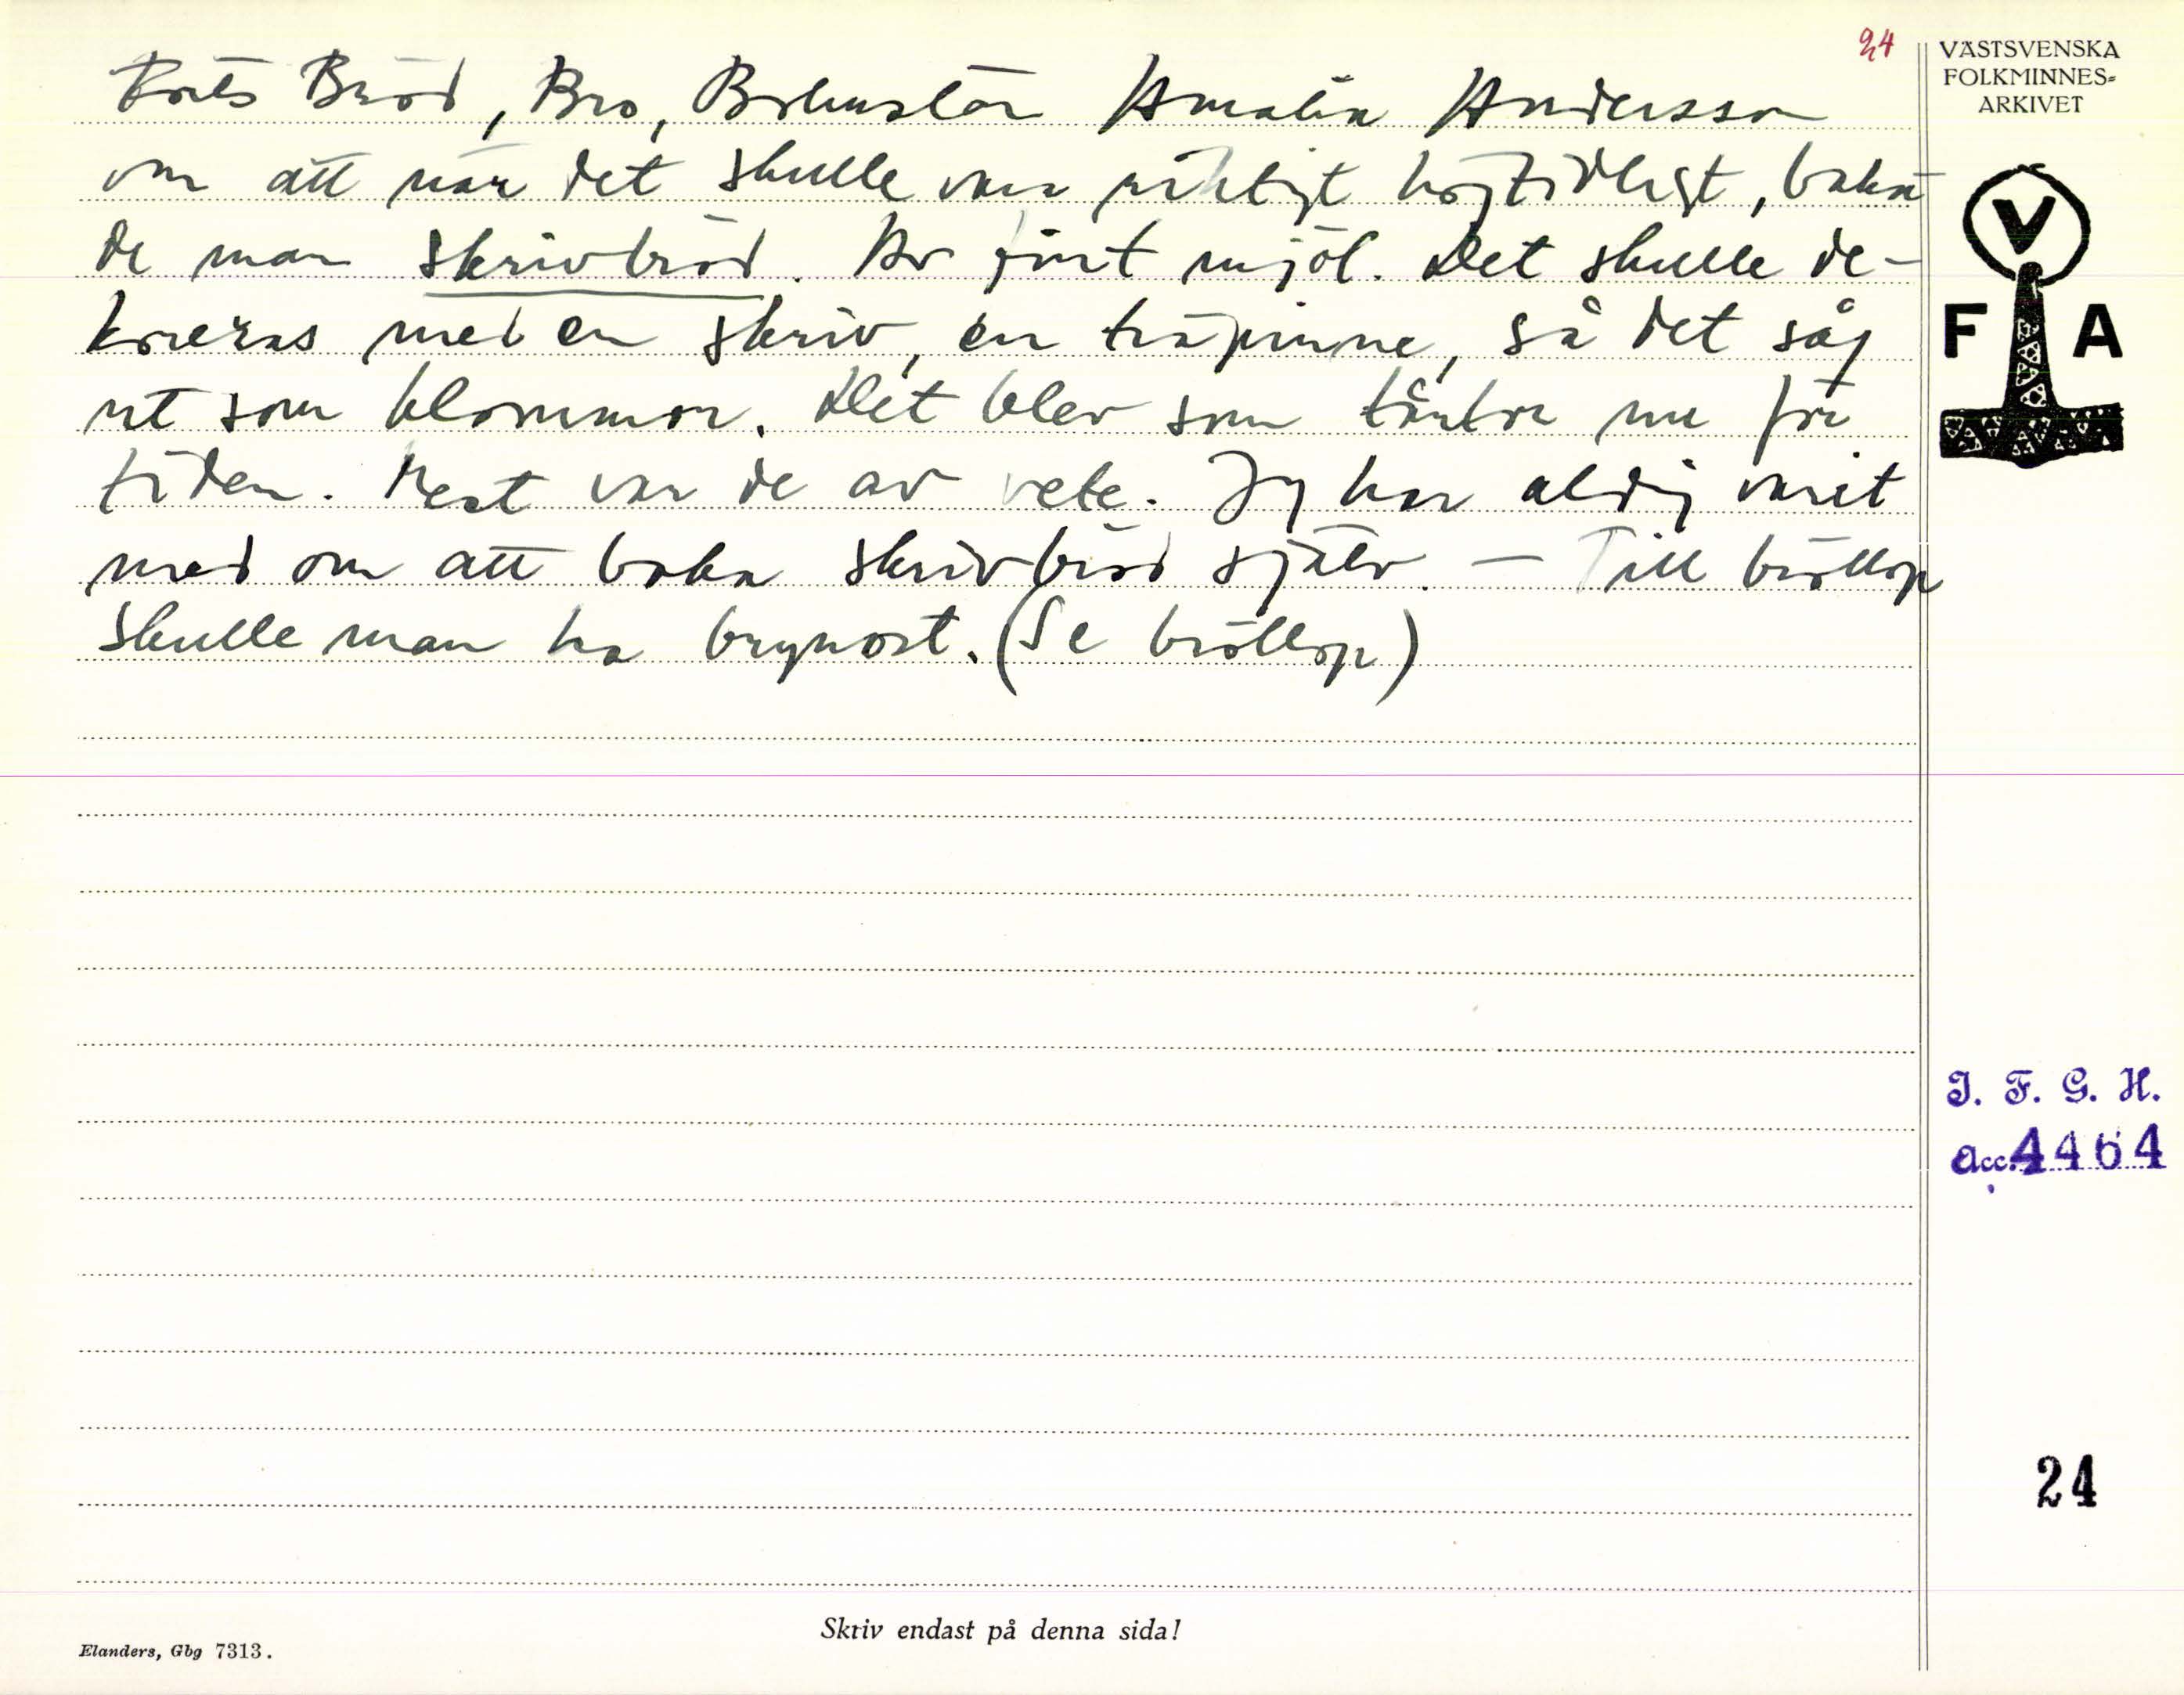 24
Forts Bröd, Bro, Bohuslän Amalia Andersson
om att när det skulle vara riktigt högtidligt, baka
de man skrivbröd. Av fint mjöl. Det skulle de-
koreras med en skriv, en träpinne, så det såg
ut som blommor. Det blev som tårtor nu för
tiden. Mest var de av vete. Jag har aldrig varit
med om att baka skrivbröd själv. – Till bröllop
skulle man ha brynost. (Se bröllop)
VÄSTSVENSKA
FOLKMINNES-
ARKIVET
V
F A
I. F. G. H.
Acc. 4464
24
Skriv endast på denna sida!
Elanders, Gbg 7313.